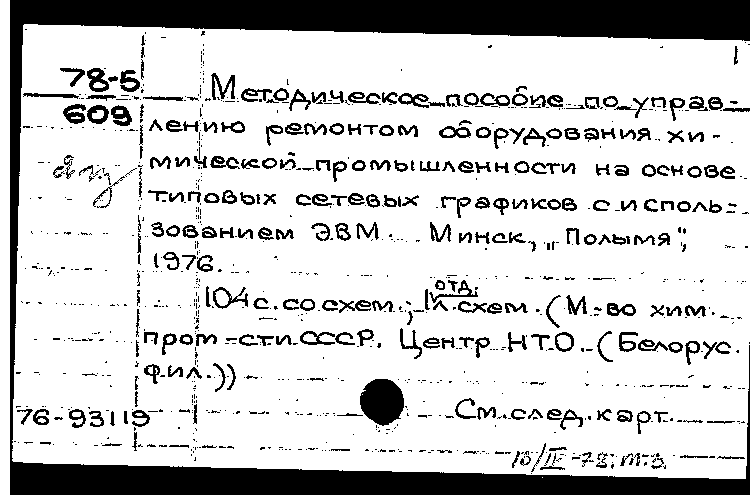 1
78-5
609
2 из
Методическое пособие по управ-
лению ремонтом оборудования хи-
мической промышленности на основе
типовых сетевых графиков с исполь-
зованием ЭВМ. Минск, „Полымя",
1976.
104 с. со схем.; 1 л. схем. (М-во хим.
отд.
пром-сти СССР. Центр НТО. (Белорус.
фил.))
76-93119
См. след. карт.